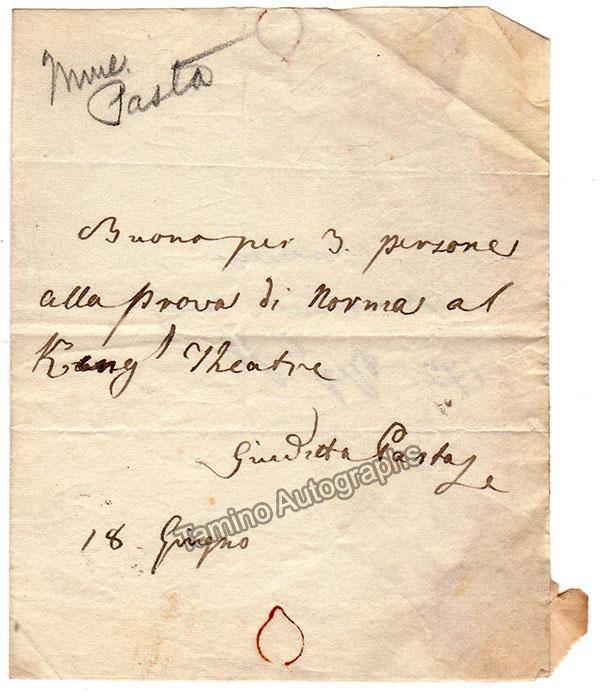 Mme.
Pasta
Buono per 3. persone
alla prova di Norma al
King' Theatre
Giuditta Pasta
18. Giugno
Tamino Autographs